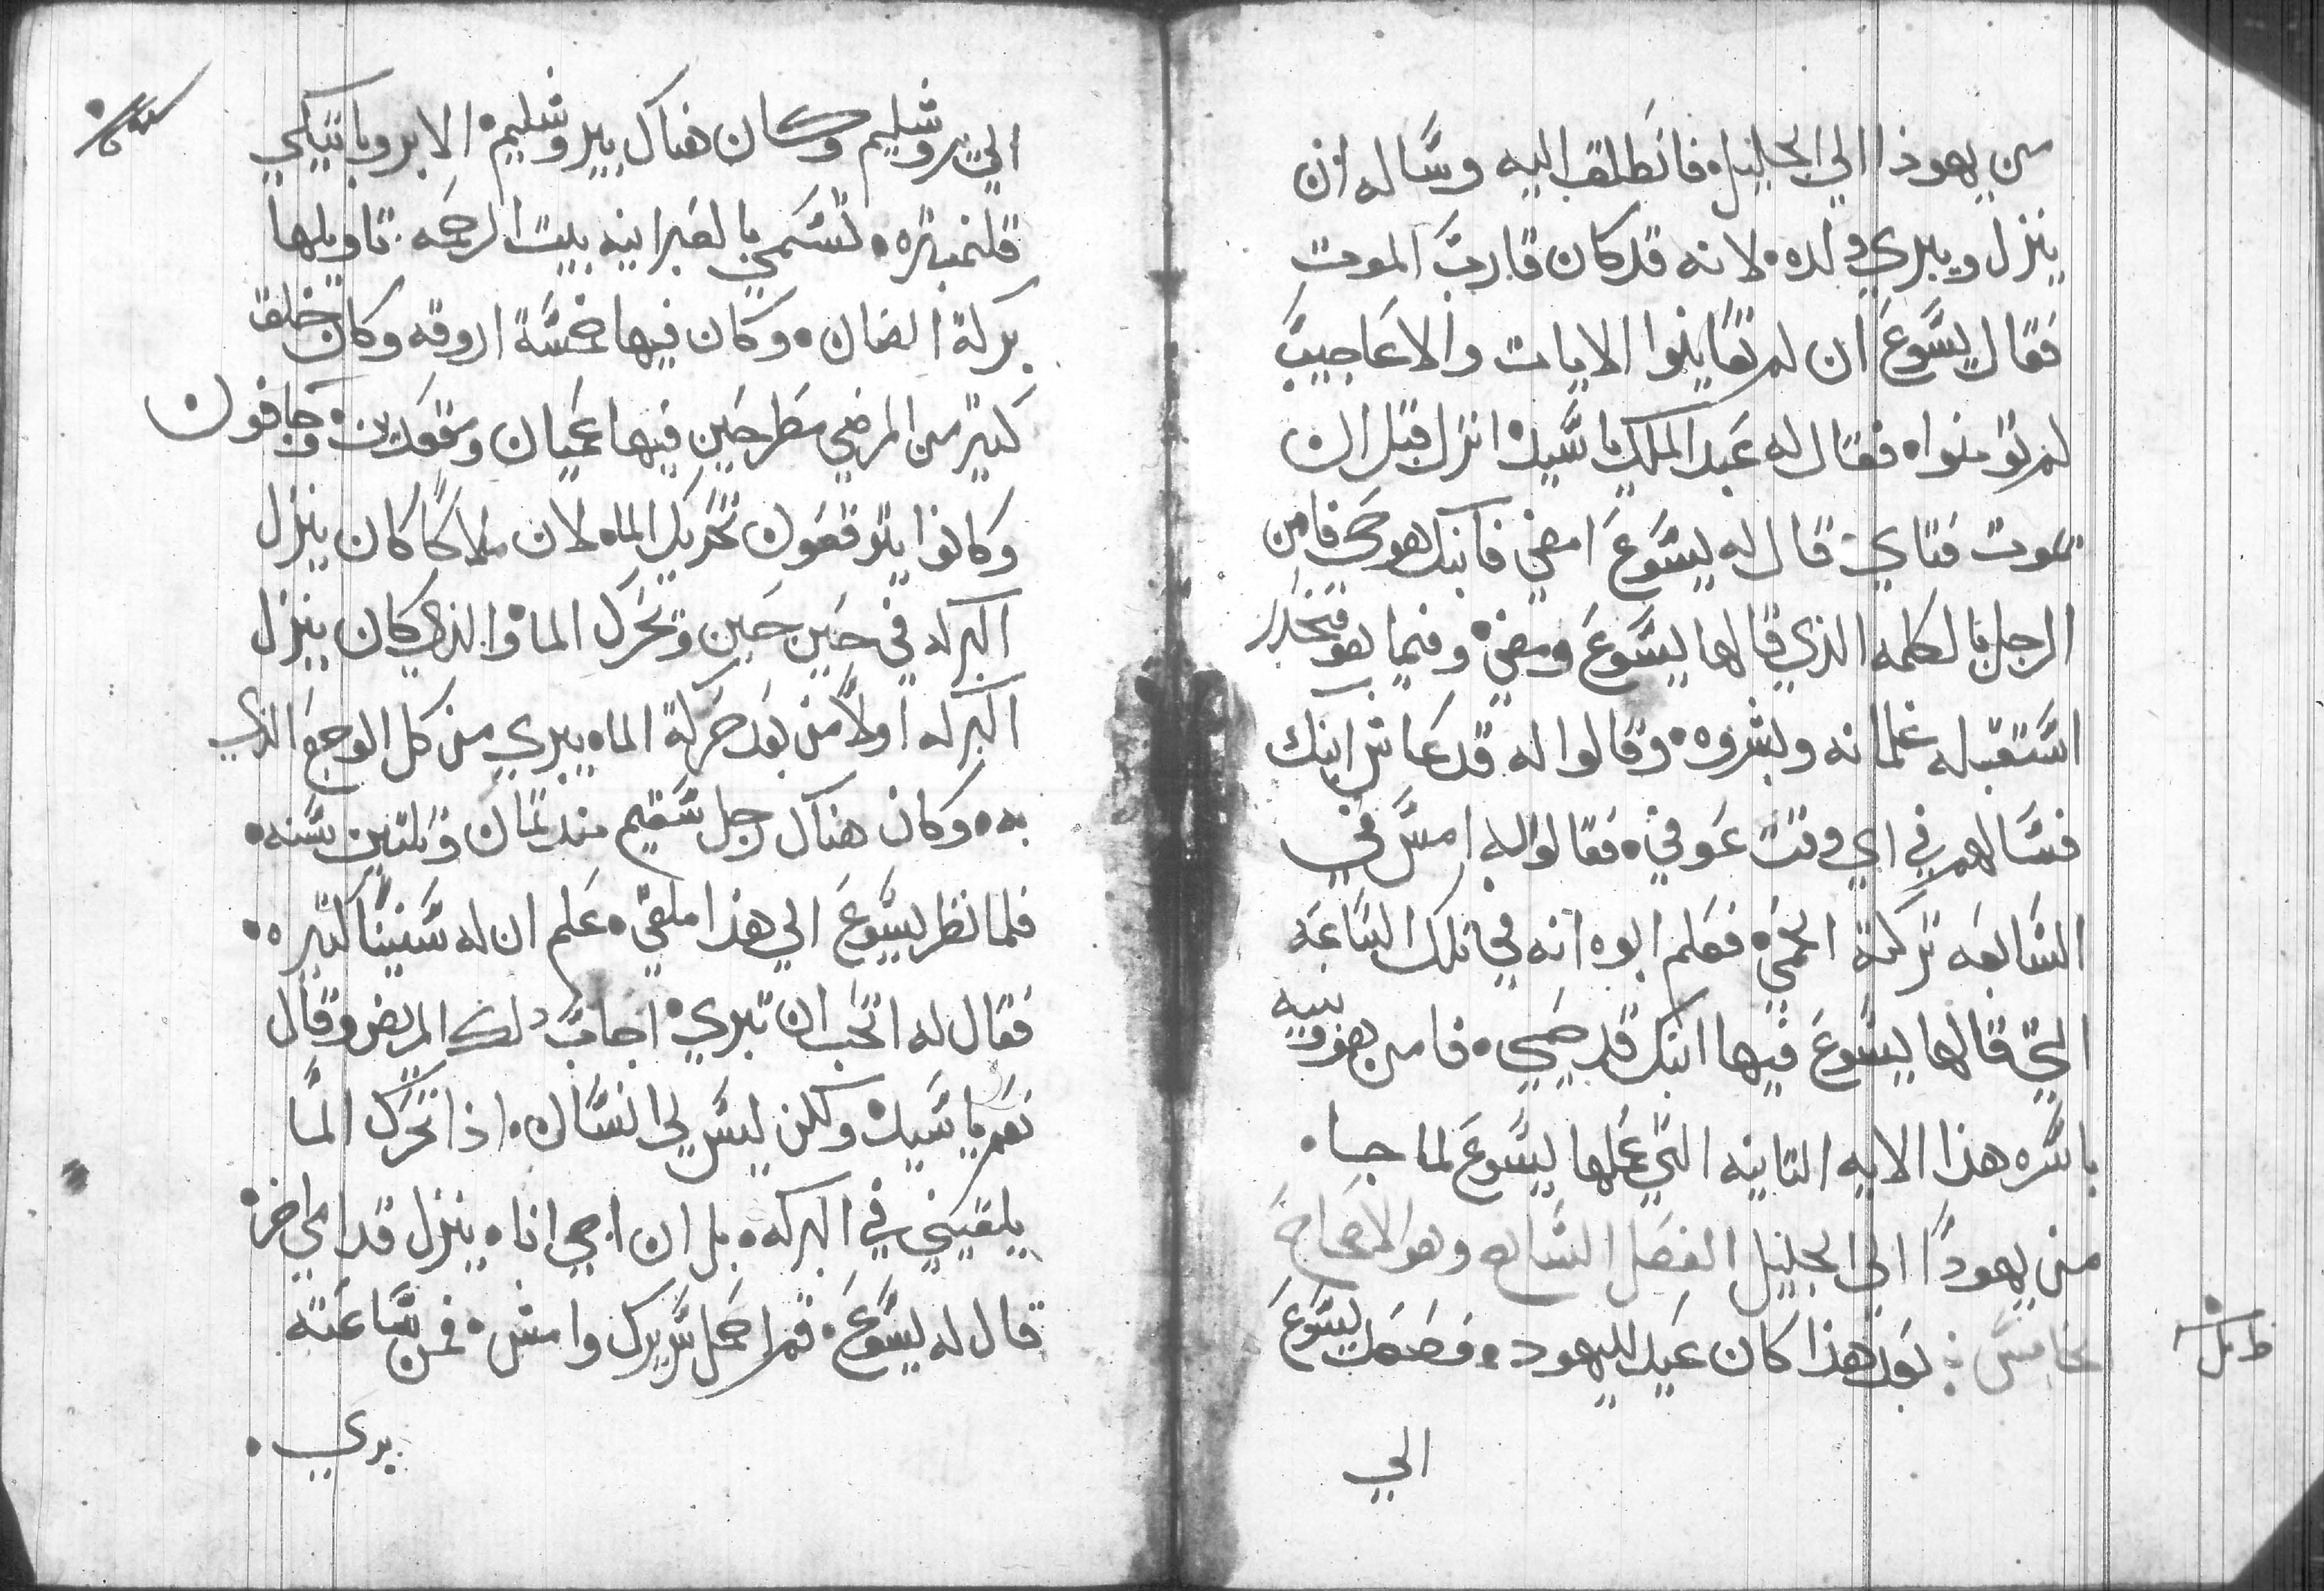 من يهوذا الي الجليل فانطلق اليه وساله ان
ينزل ويبري ولده لانه قد كان قارب الموت
فقال يسوع ان لم تعاينوا الايات والاعاجيب
لم تومنوا فقال له عبد الملك يا سيد انزل قبل ان
يموت فتاي قال له يسوع امضي فابنك هوحي فامن
الرجل بالكلمه الذي قالها يسوع ومضي وفيما هو منحدر
استقبله غلمانه وبشروه وقالوا له قد عاش ابنك
فسالهم في اي وقت عوفي فقالوا له امس في
السابعه تركته الحمي فعلم ابوه انه في تلك الساعه
التي قالها يسوع فيها ابنك قد حيي فامن هو وبيته
باسره هذا الايه التانيه التي عملها يسوع لما جا
من يهودا الي الجليل الفصل السابع وهو الاصحاح
خامس بعد هذا كان عيد لليهود فصعد يسوع
الي
الي يروشليم وكان هناك بيروشليم الابروباتيكي
قلنمبتره تسمي بالعبرانيه بيت الرحمه تاويلها
بركة الضان وكان فيها خمسة اروقه وكان خلق
كتير من المرضي مطرحين فيها عميان ومقعدين وجافون
وكانوا يتوقعون تحريك الما لان ملاكا كان ينزل
البركه في حين حين وتحرك الما والذي كان ينزل
البركه اولا من بعد حركة الما يبري من كل الوجع الذي
به وكان هناك رجل سقيم مند تمان وتلتين سنه
فلما نظر يسوع الي هذا ملقي علم ان له سنينا كتيره
فقال له اتحب ان تبري اجاب دلك المريض وقال
نعم يا سيد ولكن ليس لي انسان اذا تحرك الما
يلقيني في البركه بل ان اجي انا ينزل قدامي اخر
قال له يسوع قم احمل سريرك وامش فمن ساعته
بري